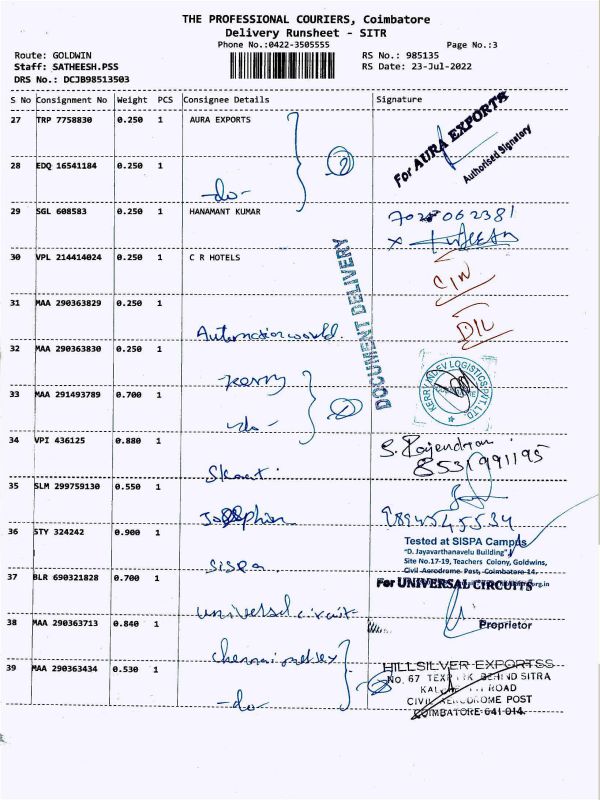 THE PROFESSIONAL COURIERS, Coimbatore
Delivery Runsheet - SITR
Phone No.:0422-3505555
Page No.:3
Route: GOLDWIN
RS No.: 985135
Staff: SATHEESH.PSS
RS Date: 23-Jul-2022
DRS No.: DCJB98513503
S No Consignment No Weight PCS Consignee Details Signature
27 TRP 7758830 0.250 1 AURA EXPORTS
For AURA EXPORTS
Authorised Signatory
28 EDQ 16541184 0.250 1
-do-
2
29 SGL 608583 0.250 1 HANAMANT KUMAR
7028062381
30 VPL 214414024 0.250 1 C R HOTELS
DOCUMENT DELIVERY
31 MAA 290363829 0.250 1
Automation world.
32 MAA 290363830 0.250 1
Kerry
KERRY INDEV LOGISTICS PVT. LTD.
33 MAA 291493789 0.700 1
-do-
34 VPI 436125 0.880 1
S. Rajendran
8531991195
35 SLM 299759130 0.550 1
36 STY 324242 0.900 1
SISPA.
Tested at SISPA Campus
"D. Jayavarthanavelu Building",
Site No.17-19, Teachers Colony, Goldwins,
Civil Aerodrome Post, Coimbatore-14.
37 BLR 690321828 0.700 1
universal circuit
For UNIVERSAL CIRCUITS
Proprietor
38 MAA 290363713 0.840 1
39 MAA 290363434 0.530 1
-do-
HILLSILVER EXPORTSS
NO. 67 BEHIND SITRA
ROAD
CIVIL AERODROME POST
COIMBATORE-641 014.